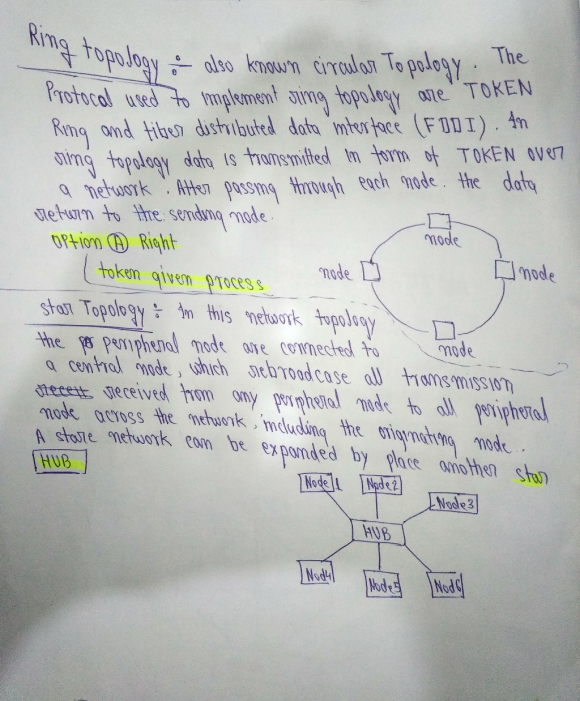 Ring topology :- also known circular Topology. The
Protocal used to implement ring topology are TOKEN
Ring and fiber distributed data interface (FDDI). In
ring topology data is transmitted in form of TOKEN over
a network. After passing through each node. the data
return to the sending node.
option (A) Right
token given process
node
node
node
node
star Topology :- In this network topology
the peripheral node are connected to
a central node, which rebroadcase all transmission
received from any peripheral node to all peripheral
node across the network, including the originating node.
A stare network can be expanded by place another star
HUB
Node 1
Node 2
Node 3
HUB
Nod4
Node5
Nod6